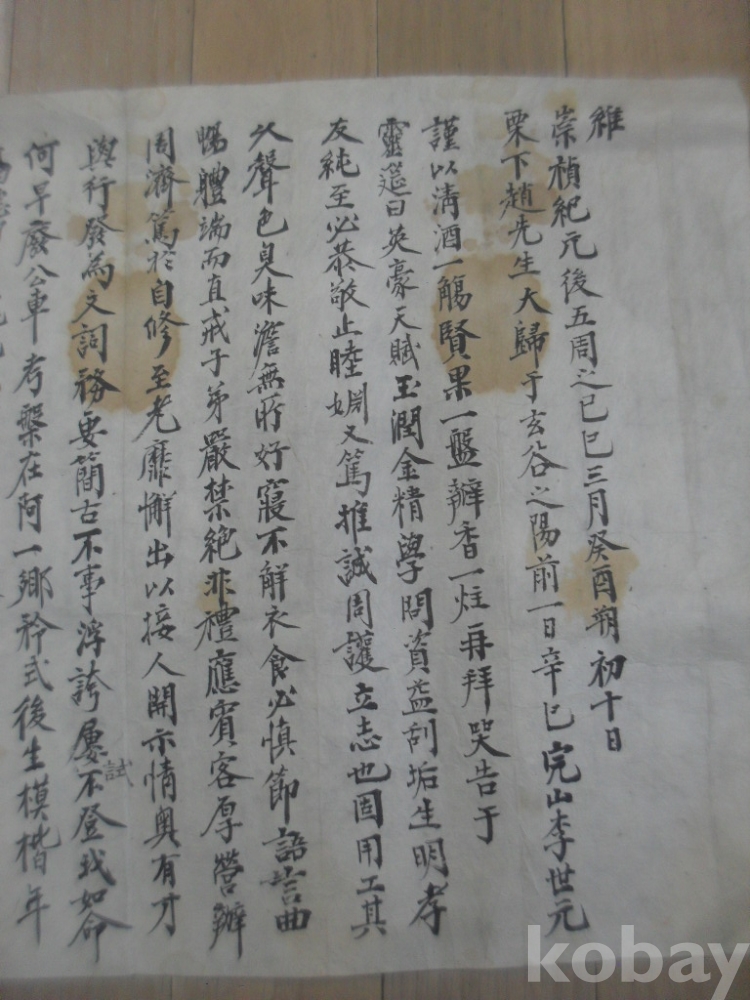 維
崇禎紀元後五周之己巳三月癸酉朔初十日
栗下趙先生大歸于玄谷之陽前一日辛巳完山李世元
謹以清酒一觴賢果一盤瓣香一炷再拜哭告于
靈筵曰英豪天賦玉潤金精學問資益刮垢生明孝
友純至必恭敬止睦婣又篤推誠周護立志也固用工其
以聲色臭味澹無所好寢不解衣食必慎節語言曲
暢體端而直戒子弟嚴禁絕非禮應賓客厚營辦
周濟篤於自修至老靡懈出以接人開示情奧有才
與行發為文詞務要簡古不事浮誇屢試不登我如命
何早廢公車考槃在阿一鄉矜式後生模楷年
kobay